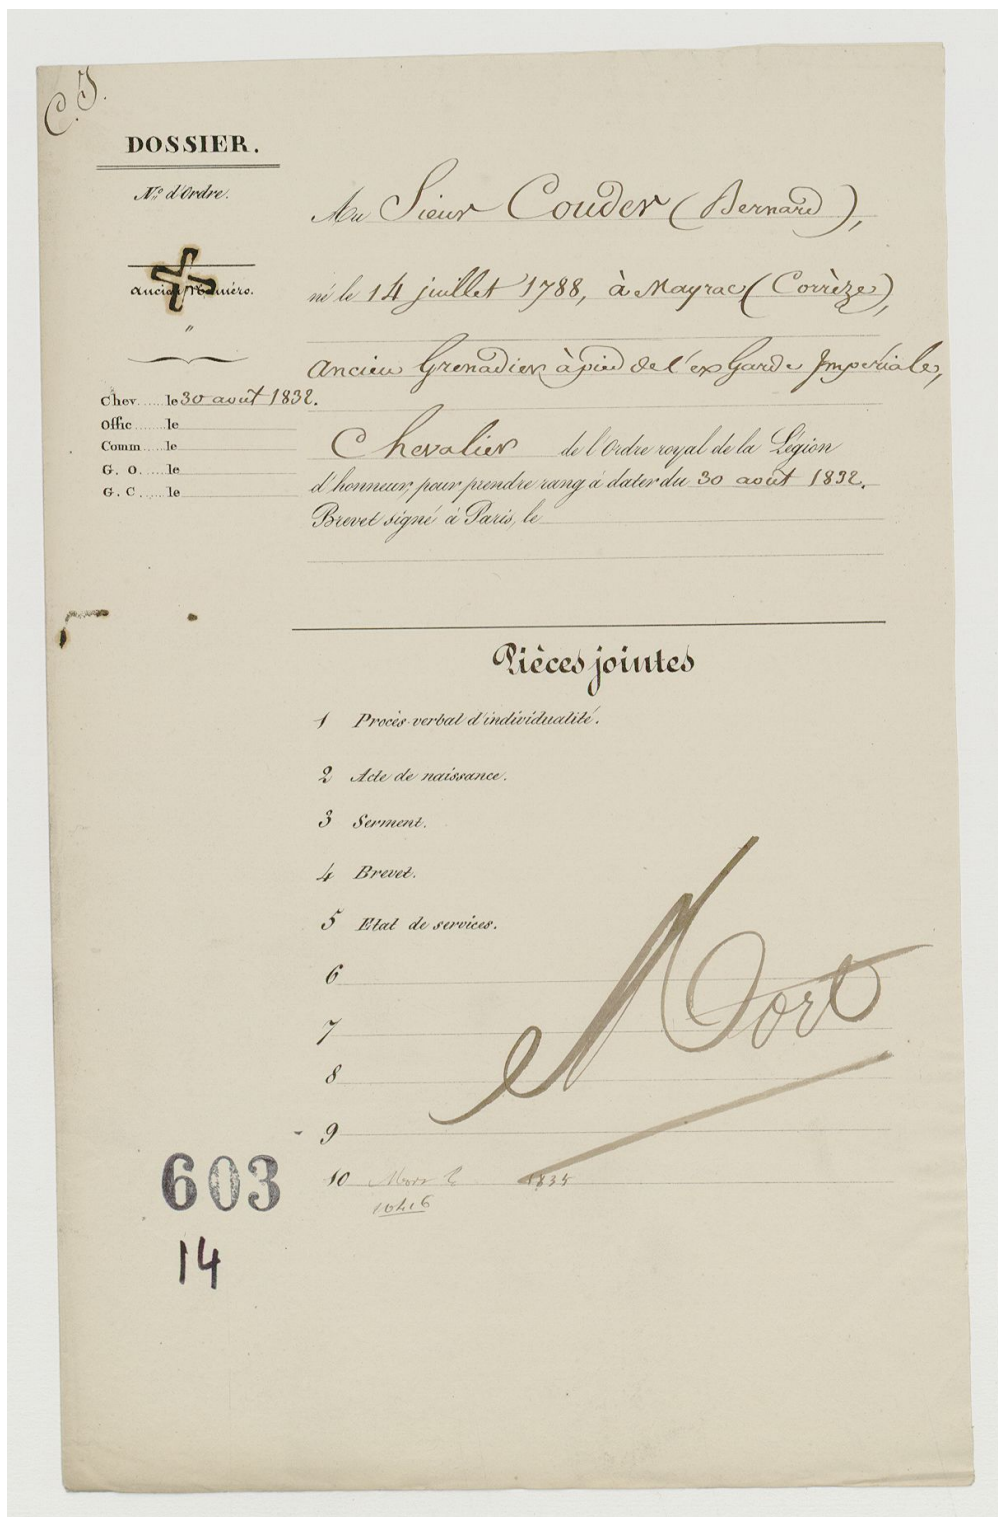 C. J.
DOSSIER.
N.º d'Ordre.
Ancien Numéro.
"
Chev..... le 30 août 1832.
Offic ....... le
Comm .... le
G. O. .... le
G. C. .... le
Au Sieur Couder (Bernard),
né le 14 juillet 1788, à Mayrac (Corrèze),
ancien Grenadier à pied de l'ex Garde Impériale,
Chevalier de l'Ordre royal de la Légion
d'honneur, pour prendre rang à dater du 30 août 1832.
Brevet signé à Paris, le
Pièces jointes
1 Procès-verbal d'individualité.
2 Acte de naissance.
3 Serment.
4 Brevet.
5 Etat de services.
6
7
8
9
10 Mort le 1835
10416
Mort
603
14